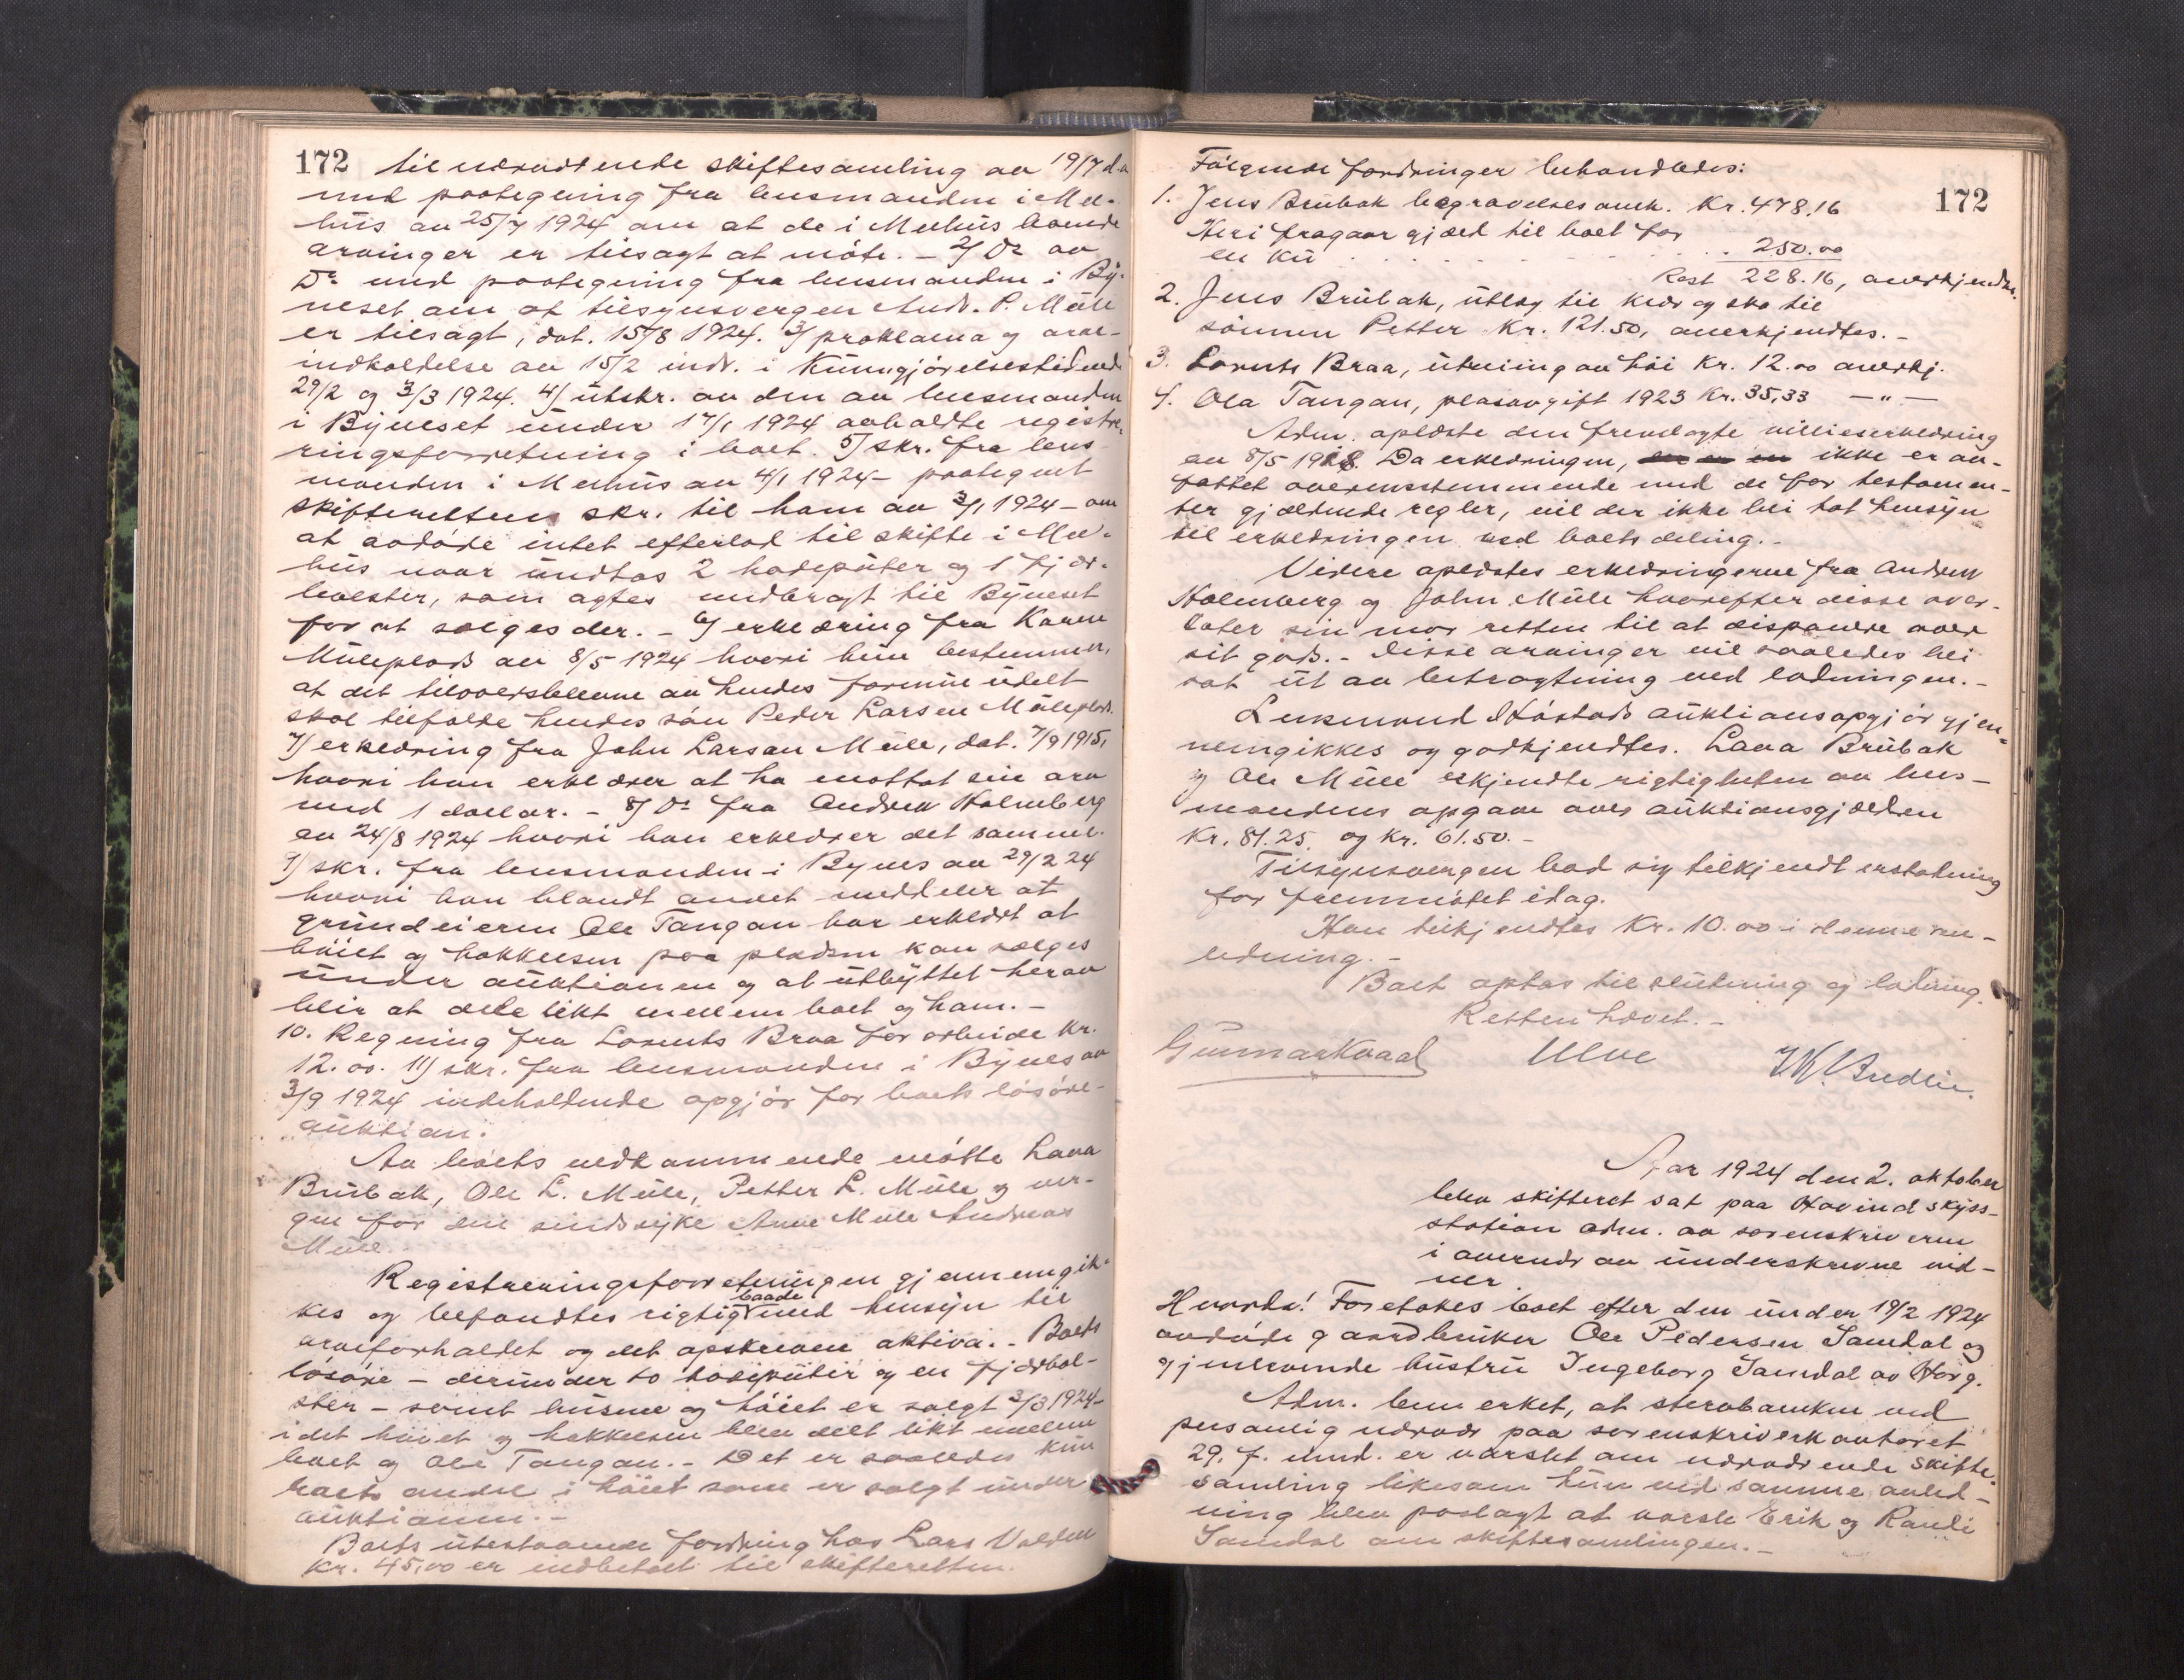 172 til nærværende skiftesamling av 19/7 d.a
med paategning fra lensmanden i Mel-
hus av 25/7 1924 om at de i Melhus boende
arvinger er tilsagt at møte. - 2/ Do av
Do med paategning fra lensmanden i By-
neset om at tilsynsvergen Andr. P. Mule
er tilsagt, dat. 15/8 1924. 3/ proklama og arve-
indkaldelse av 15/2 indr. i Kunngjørelsestidende
29/2 og 3/3 1924. 4/ utskr. av den av lensmanden
i Byneset under 17/1 1924 avholdte registre-
ringsforretning i boet. 5/ skr. fra lens-
manden i Melhus av 4/1 1924 - paategnet
skifterettens skr. til ham av 3/1 1924 - om
at avdøde intet efterlod til skifte i Mel-
hus naar undtas 2 hodeputer og 1 fjær-
bolster, som agtes medbragt til Byneset
for at sælges der. - 6/ erklæring fra Karen
Muleplads av 8/5 1924 hvori hun bestemmer,
at det tiloversblevne av hendes formue udelt
skal tilfalde hendes søn Peder Larsen Muleplads.
7/ erklæring fra John Larsen Mule, dat. 7/9 1915,
hvori han erklærer at ha mottat sin arv
med 1 dollar. - 8/ Do fra Andrew Holmberg
av 24/8 1924 hvori han erklærer det samme.
9/ skr. fra lensmanden i Bynes av 29/2 24
hvori han blandt andet meddeler at
grundeieren Ole Tangan har erklært at
høiet og hakkelsen paa pladsen kan sælges
under auktionen og at utbyttet herav
blir at dele likt mellem boet og ham. -
10. Regning fra Lorents Braa for arbeide kr.
12.00. 11) skr. fra lensmanden i Bynes av
3/9 1924 indeholdende opgjør for boets løsøre-
auktion.
Av boets vedkommende møtte Lava
Brubak, Ole L. Mule, Petter L. Mule og ver-
gen for den sindssyke Anne Mule Andreas
Mule.
Registreringsforretningen gjennemgik-
kes og befandtes rigtig baade med hensyn til
arveforholdet og det opskrevne aktiva. - Boets
løsøre - derunder to hodeputer og en fjærbol-
ster - samt husene og høiet er solgt 3/3 1924 -
idet høiet og hakkelsen blev delt likt mellem
boet og Ole Tangan. - Det er saaledes kun
boets andel i høiet som er solgt under
auktionen. -
Boets utestaaende fordring hos Lars Valden
kr. 45,00 er indbetalt til skifteretten.
172
Følgende fordringer behandledes:
1. Jens Brubak begravelsesomk. Kr. 478,16
Heri fragaar gjæld til boet for
en ku . . . . . . . . . 250.00
Rest 228.16, anerkjendtes.
2. Jens Brubak, utlæg til klær og sko til
sønnen Petter Kr. 121.50, anerkjendtes. -
3. Lorents Braa, utkjøring av høi Kr. 12.00 anerkj.
4. Ola Tangan, plasavgift 1923 Kr. 35,33 - " -
Adm. oplæste den fremlagte villieserklæring
av 8/5 1918. Da erklæringen, ikke er av-
fattet overensstemmende med de for testamen-
ter gjældende regler, vil der ikke bli tat hensyn
til erklæringen ved boets deling. -
Videre oplæstes erklæringerne fra Andrew
Holmberg og John Mule hvorefter disse over-
later sin mor retten til at disponere over
sit gods. - Disse arvinger vil saaledes bli
sat ut av betragtning ved lodningen. -
Lensmand Støstads auktionsopgjør gjen-
nemgikkes og godkjendtes. Lava Brubak
og Ole Mule erkjendte rigtigheten av lens-
mandens opgave over auktionsgjælden
Kr. 81.25 og kr. 61.50. -
Tilsynsvergen bad sig tilkjendt erstatning
for fremmøtet idag.
Han tilkjendtes Kr. 10.00 i denne an-
ledning. -
Boet optas til slutning og lodning.
Retten hævet. -
Gunnar Kvaal Ulve W. Bredlie.
Aar 1924 den 2. oktober
blev skifteret sat paa Hovind skyss-
station adm. av sorenskriveren
i overvær av underskrevne vid-
ner.
Hvorda! Foretokes boet efter den under 19/2 1924
avdøde gaardbruker Ole Pedersen Samdal og
gjenlevende hustru Ingeborg Samdal av Horg.
Adm. bemerket, at sterboenken ved
personlig nærvær paa sorenskriverkontoret
29. f. mnd. er varslet om nærværende skifte-
samling likesom hun ved samme anled-
ning blev paalagt at varsle Erik og Randi
Samdal om skiftesamlingen. -